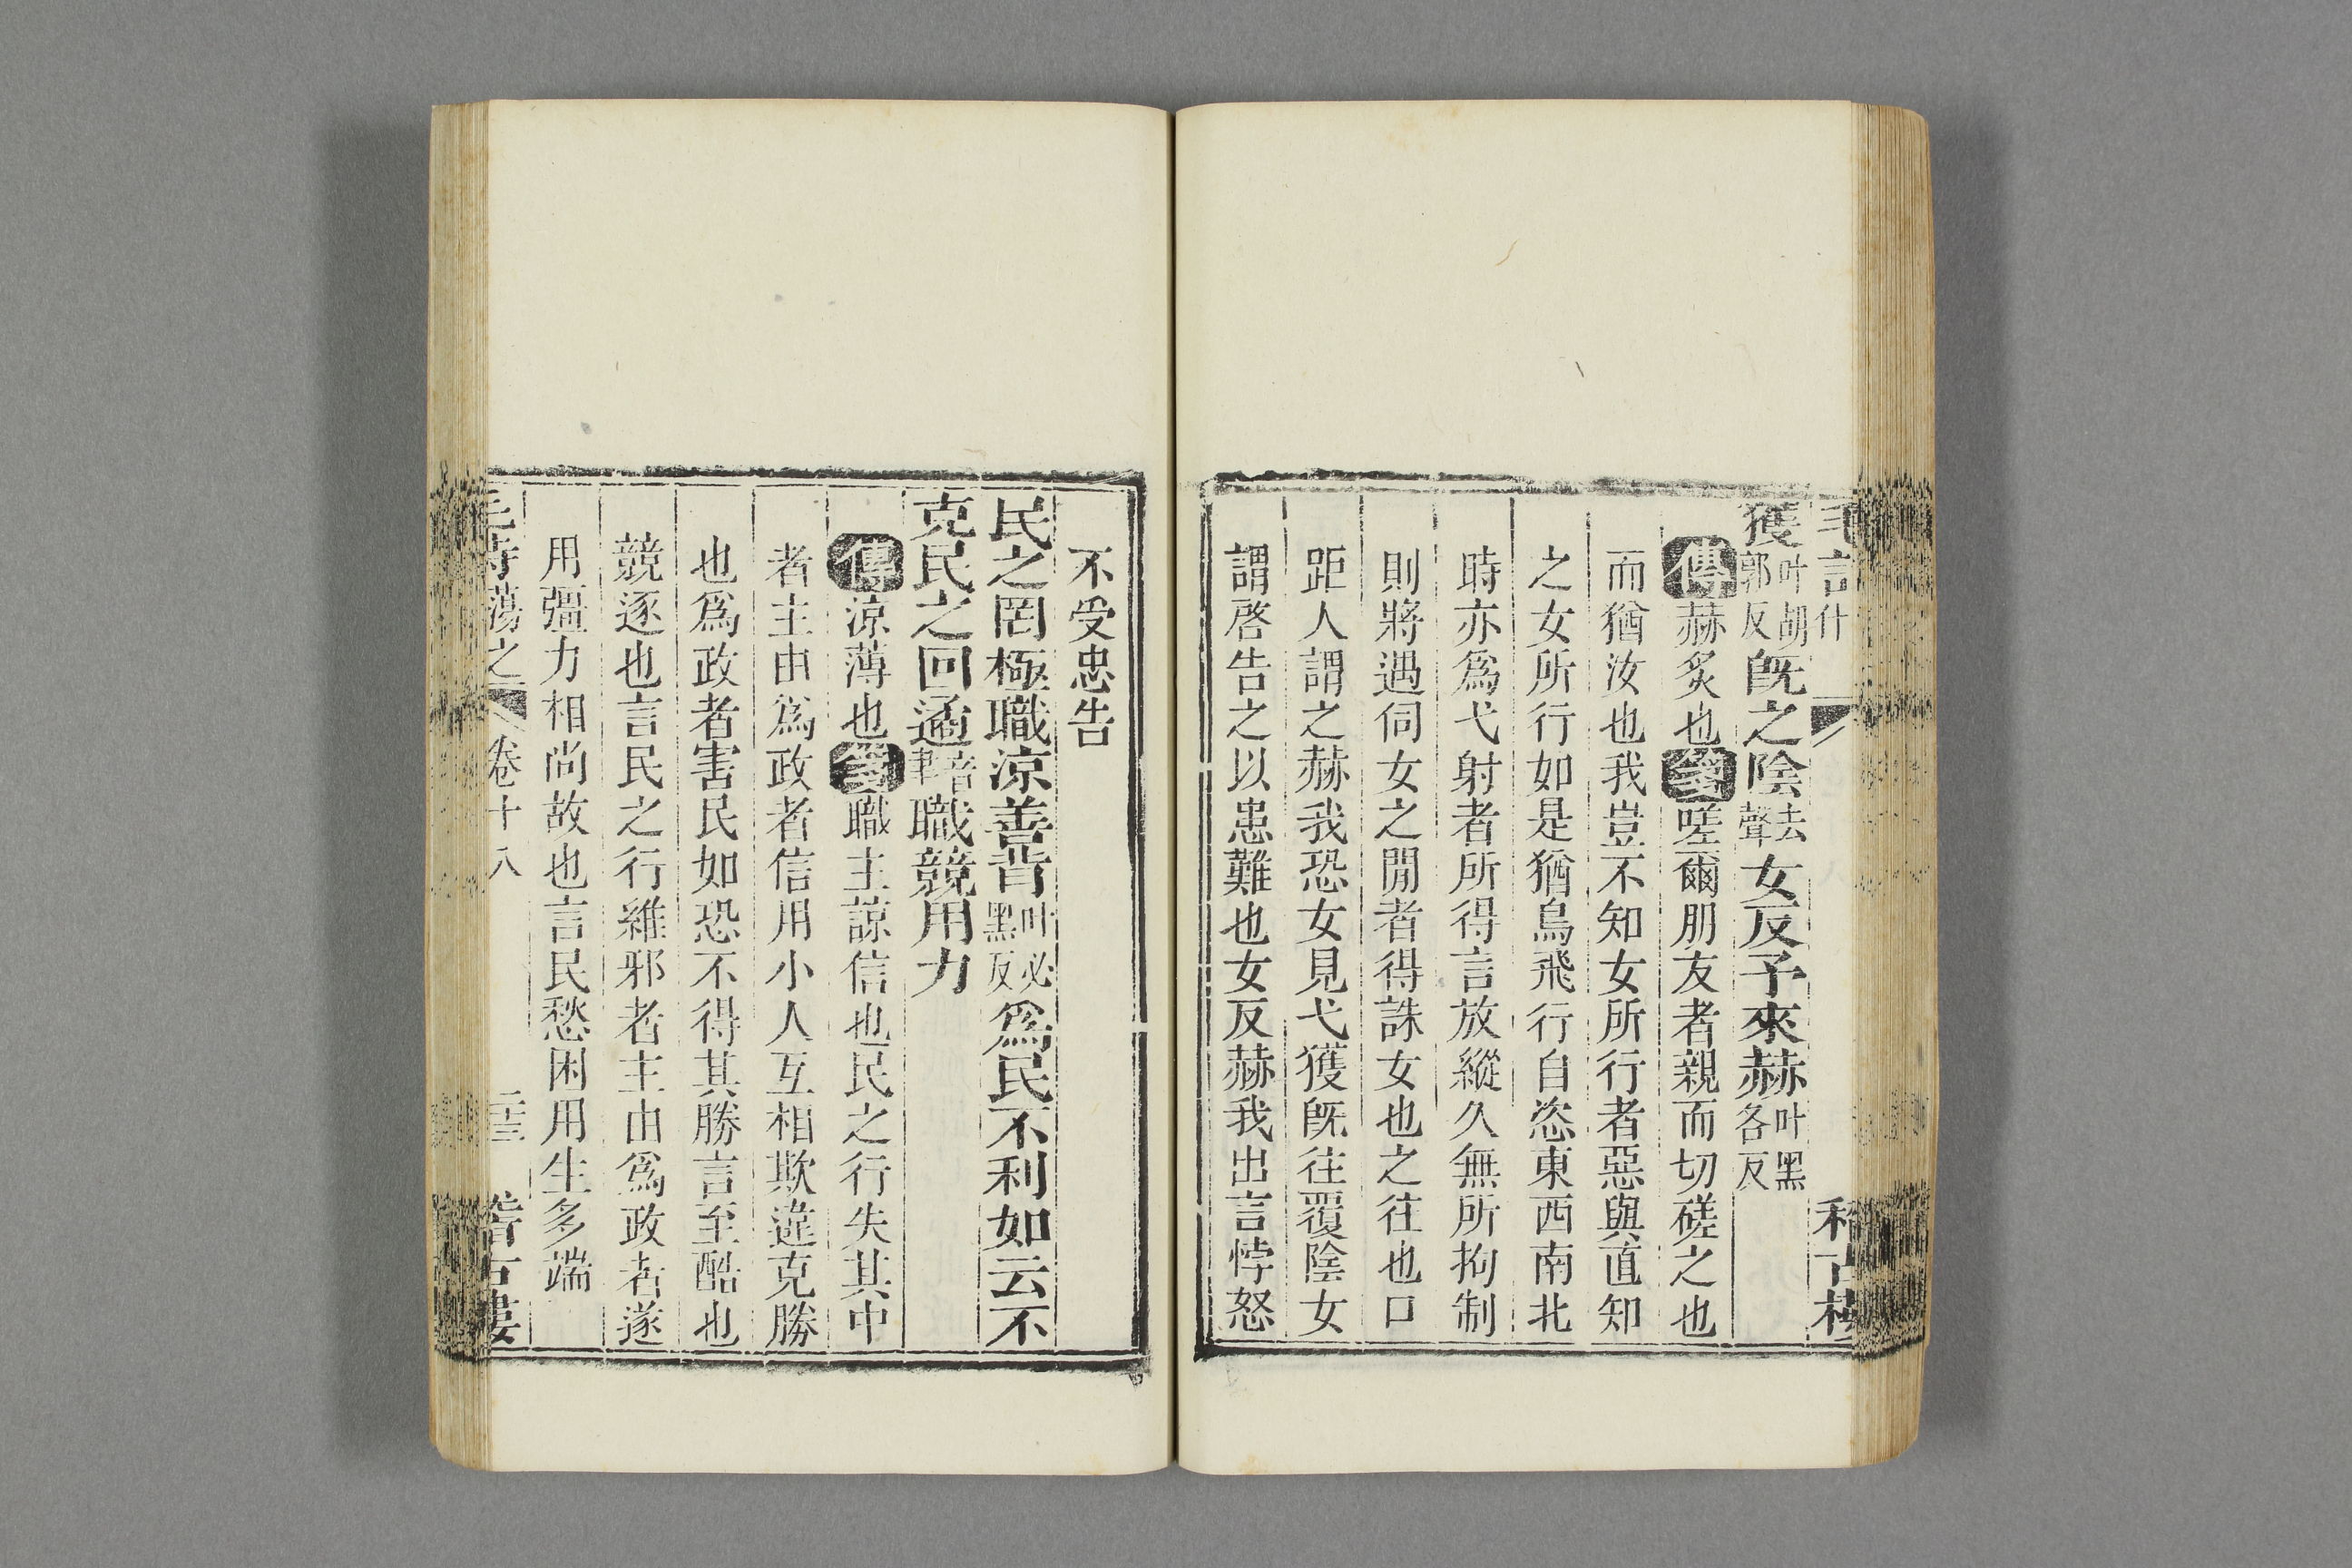 獲叶胡郭反既之陰去聲女反予來赫叶黑各反
傳赫炙也箋嗟爾朋友者親而切磋之也
而猶汝也我豈不知女所行者惡與直知
之女所行如是猶鳥飛行自恣東西南北
時亦爲弋射者所得言放縱久無所拘制
則將遇伺女之閒者得誅女也之往也口
距人謂之赫我恐女見弋獲既往覆陰女
謂啓告之以患難也女反赫我出言悖怒
不受忠告
民之罔極職涼善背叶必黑反爲民不利如云不
克民之回遹音聿職競用力
傳涼薄也箋職主諒信也民之行失其中
者主由爲政者信用小人互相欺違克勝
也爲政者害民如恐不得其勝言至酷也
競逐也言民之行維邪者主由爲政者遂
用彊力相尚故也言民愁困用生多端
毛詩蕩之 卷十八 三 稽古樓